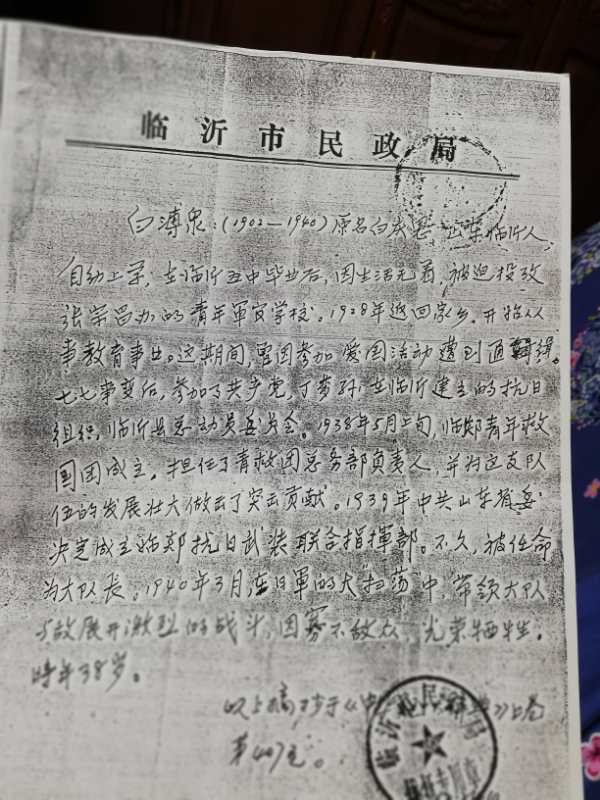 临沂市民政局
白溥泉:(1902—1940)原名白庆 山东临沂人,
自幼上学,在临沂五中毕业后,因生活无着,被迫投考
张宗昌办的青年軍官学校。1928年返回家乡,开始从
事教育事业。这期间,曾因参加爱国活动遭到通緝。
七七事变后,参加了共产党,丁梦孙在临沂建立的抗日
组织,临沂县总动员委员会。1938年5月上旬,临郯青年救
国团成立,担任了青救团总务部负责人,并为这支队
伍的发展壮大做出了突出贡献。1939年中共山东省委
决定成立临郯抗日武装联合指揮部。不久,被任命
为大队長。1940年3月,在日軍的大扫荡中,带领大队
与敌展开激烈的战斗,因寡不敌众,光荣牺牲。
時年38岁。
以上稿,抄于《中 》上卷
第407页。
临沂 民政局